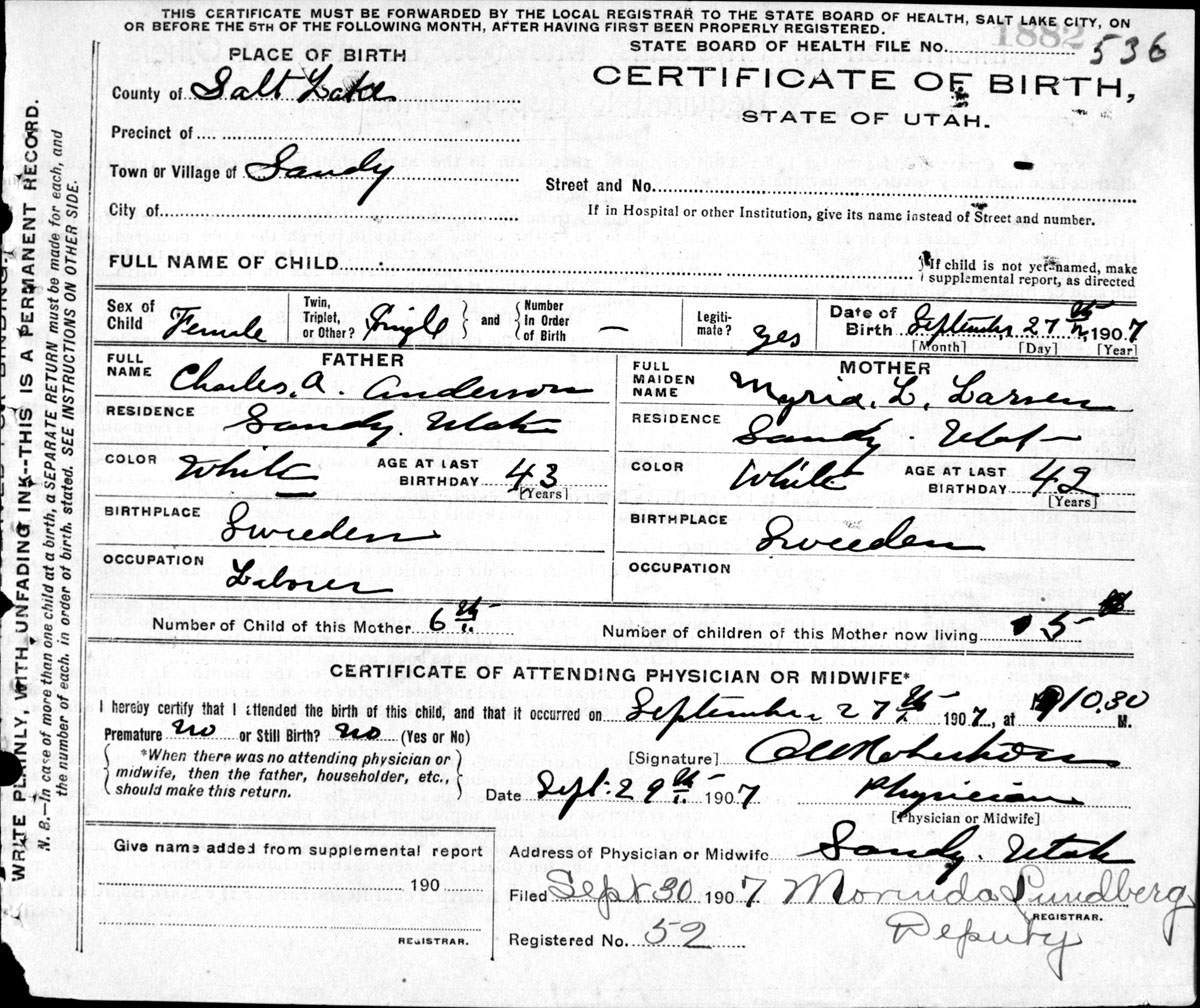 THIS CERTIFICATE MUST BE FORWARDED BY THE LOCAL REGISTRAR TO THE STATE BOARD OF HEALTH, SALT LAKE CITY, ON
OR BEFORE THE 5TH OF THE FOLLOWING MONTH, AFTER HAVING FIRST BEEN PROPERLY REGISTERED.
STATE BOARD OF HEALTH FILE No. 1882 536
PLACE OF BIRTH
CERTIFICATE OF BIRTH,
STATE OF UTAH.
County of Salt Lake
Precinct of
Town or Village of Sandy
Street and No. -
City of
If in Hospital or other Institution, give its name instead of Street and number.
FULL NAME OF CHILD
If child is not yet named, make
supplemental report, as directed
Sex of Child Female
Twin, Triplet, or Other? Single
and Number in Order of Birth —
Legitimate? yes
Date of Birth September 27th, 1907
[Month] [Day] [Year]
FATHER
FULL NAME Charles. A. Anderson
RESIDENCE Sandy Utah
COLOR White
AGE AT LAST BIRTHDAY 43
[Years]
BIRTHPLACE Sweeden
OCCUPATION Laborer
MOTHER
FULL MAIDEN NAME Myria. L. Larsen
RESIDENCE Sandy. Utah
COLOR White
AGE AT LAST BIRTHDAY 42
[Years]
BIRTHPLACE Sweeden
OCCUPATION
Number of Child of this Mother 6th
Number of children of this Mother now living 5
CERTIFICATE OF ATTENDING PHYSICIAN OR MIDWIFE*
I hereby certify that I attended the birth of this child, and that it occurred on September 27th 1907, at 10.30 M.
Premature no or Still Birth? no (Yes or No)
*When there was no attending physician or
midwife, then the father, householder, etc.,
should make this return.
[Signature]
Date Sept. 29th 1907 Physician
[Physician or Midwife]
Give name added from supplemental report
190
REGISTRAR.
Address of Physician or Midwife Sandy. Utah
Filed Sept 30 1907 Morinda Lundberg
REGISTRAR.
Registered No. 52 Deputy
WRITE PLAINLY, WITH UNFADING INK--THIS IS A PERMANENT RECORD.
N. B.—In case of more than one child at a birth, a SEPARATE RETURN must be made for each, and
the number of each, in order of birth, stated. SEE INSTRUCTIONS ON OTHER SIDE.